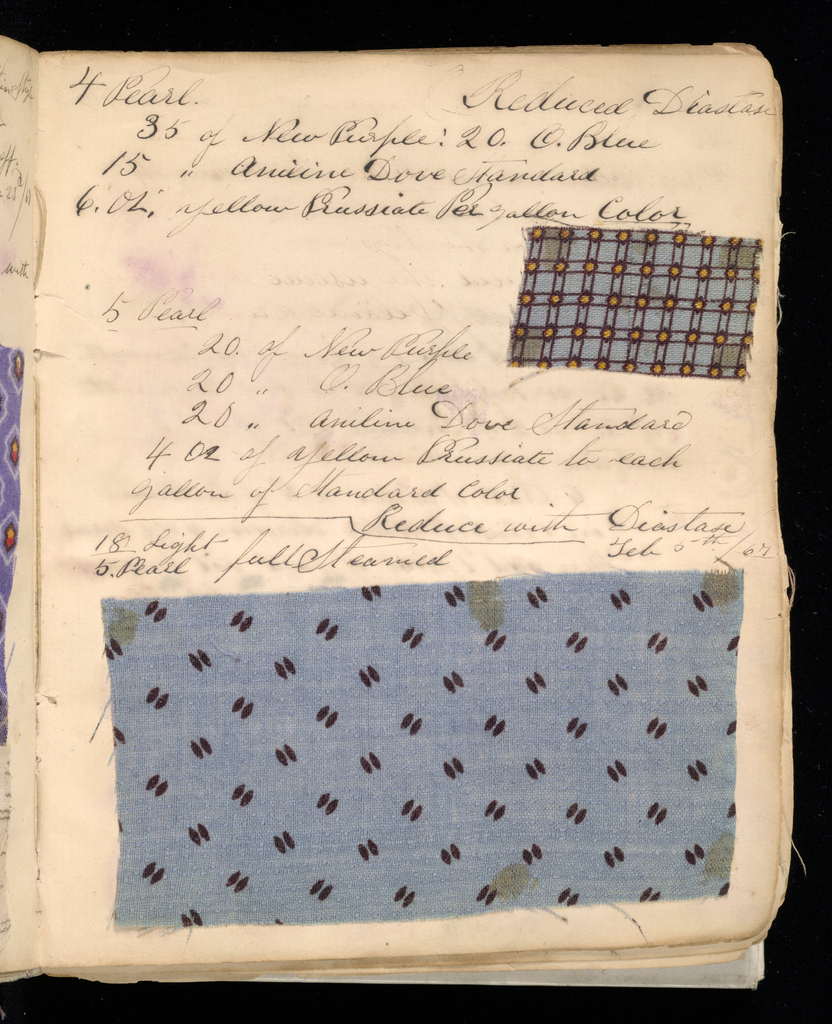 4 Pearl. Reduced Diastase
35 of New Purple: 20. O. Blue
15 " Aniline Dove Standard
6. Oz. Yellow Prussiate Per gallon Color
5 Pearl
20. of New Purple
20 " O. Blue
20 " Aniline Dove Standard
4 Oz of Yellow Prussiate to each
gallon of Standard Color
Reduce with Diastase
18 Light Feb 5th/67
5. Pearl full Steamed
with